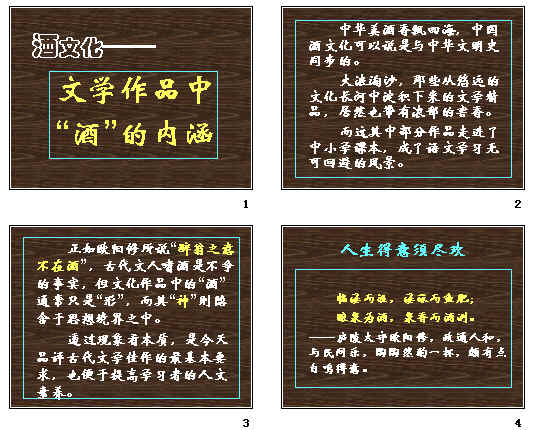 酒文化——
文学作品中
“酒”的内涵
1
中华美酒香飘四海，中国
酒文化可以说是与中华文明史
同步的。
大浪淘沙，那些从悠远的
文化长河中沈积下来的文学精
品，居然也带有浓郁的芸香。
而这其中部分作品走进了
中小学课本，成了语文学习无
可回避的风景。
2
正如欧阳修所说“醉翁之意
不在酒”，古代文人嗜酒是不争
的事实，但文化作品中的“酒”
通常只是“形”，而其“神”则隐
含于思想境界之中。
透过现象看本质，是今天
品评古代文学佳作的最基本要
求，也便于提高学习者的人文
素养。
3
人生得意须尽欢
临溪而渔，溪深而鱼肥；
酿泉为酒，泉香而酒洌。
——庐陵太守欧阳修，政通人和，
与民同乐，陶陶然酌一杯，颇有点
自鸣得意。
4